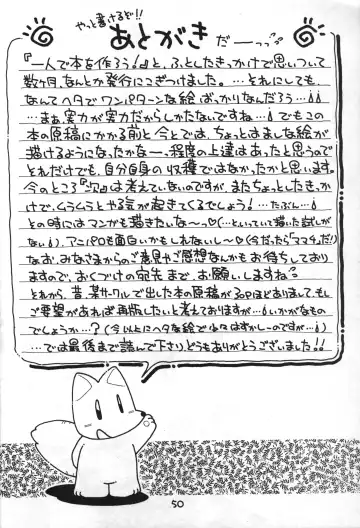 やっと書けるぞ!!
あとがきだーっっっ
『一人で本を作ろう!』と、ふとしたきっかけで思いついて
数か月、なんとか発行にこぎつけました。…それにしても、
なんてヘタでワンパターンな絵ばっかりなんだろう…
…まぁ実力が実力だからしかたないですね…でもこの
本の原稿にかかる前と今とでは、ちょっとはましな絵が
描けるようになったかなー、程度の上達はあったと思うので
それだけでも、自分自身の収穫ではなかったかと思います。
今のところ『次』は考えていないのですが、またちょっとしたきっか
けで、ムラムラとやる気が起きてくるでしょう!…たぶん…
その時にはマンガも描きたいな〜っ♡(…といっていて描いた試しが
ない)、アニパロも面白いかもしれないし〜♡(今だったら「ママ4」だ!)
なお、みなさまからのご意見やご感想なんかもお待ちしており
ますので、おくづけの宛先まで、お願いしますね。
それから、昔、某サークルで出した本の原稿が30Pほどありまして、もし
ご要望があれば再版したいと考えておりますが…いかがなもの
でしょうか…?(今以上にヘタな絵で少々はずかしーのですが…)
…では最後まで読んで下さり、どうもありがとうございました!!
50